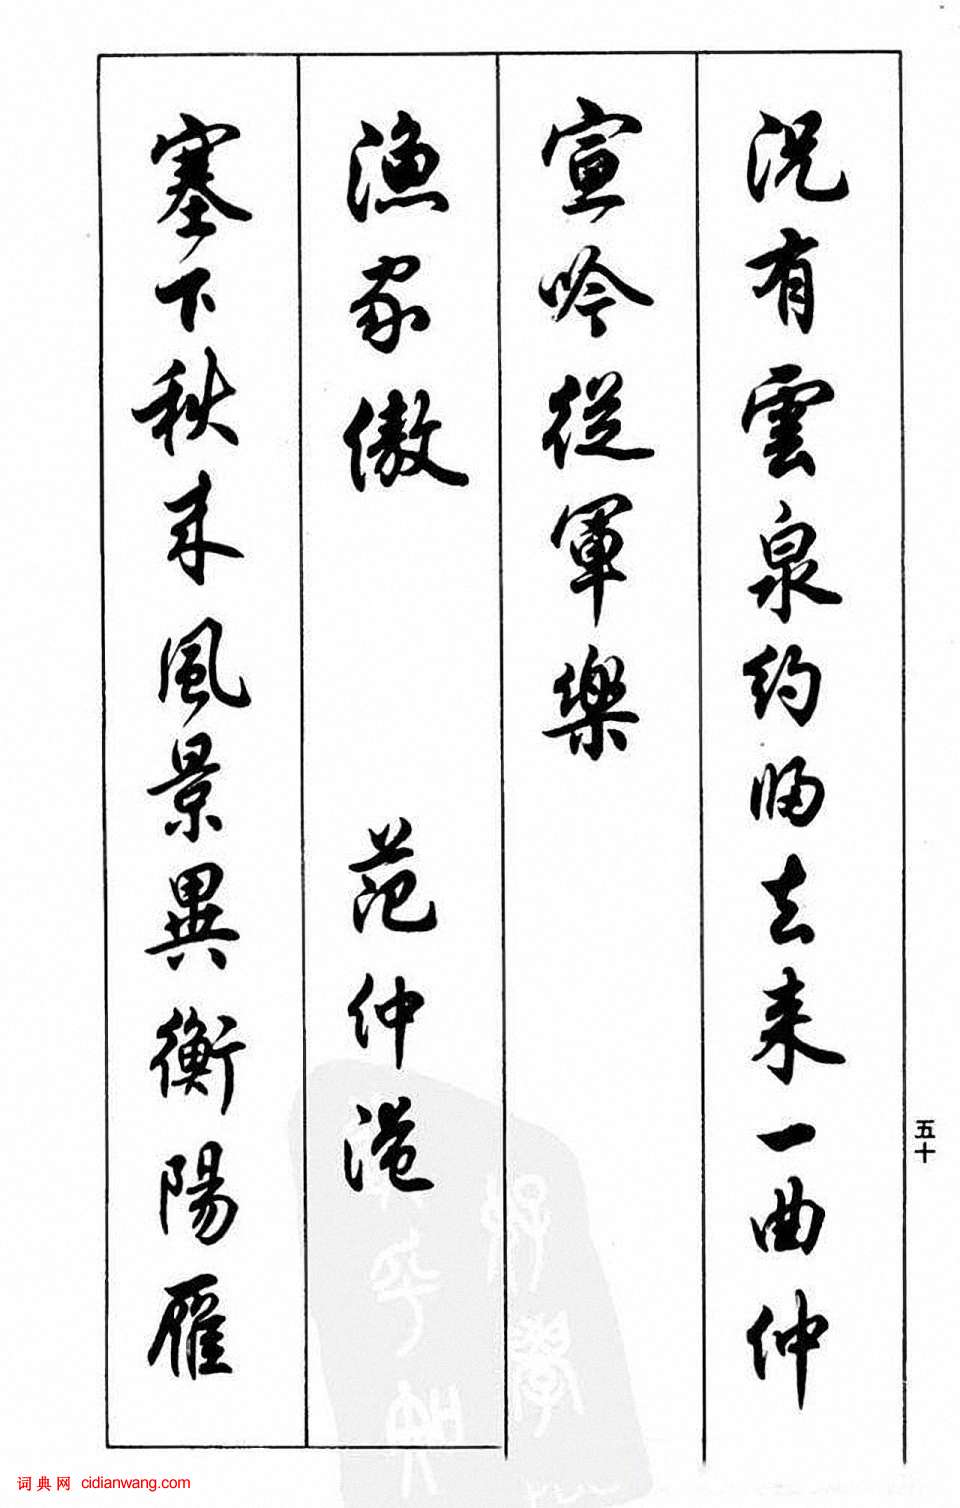 況有雲泉約歸去来一曲仲
宣吟從軍樂
漁家傲 范仲淹
塞下秋来風景異衡陽雁
五十
词典网 cidianwang.com